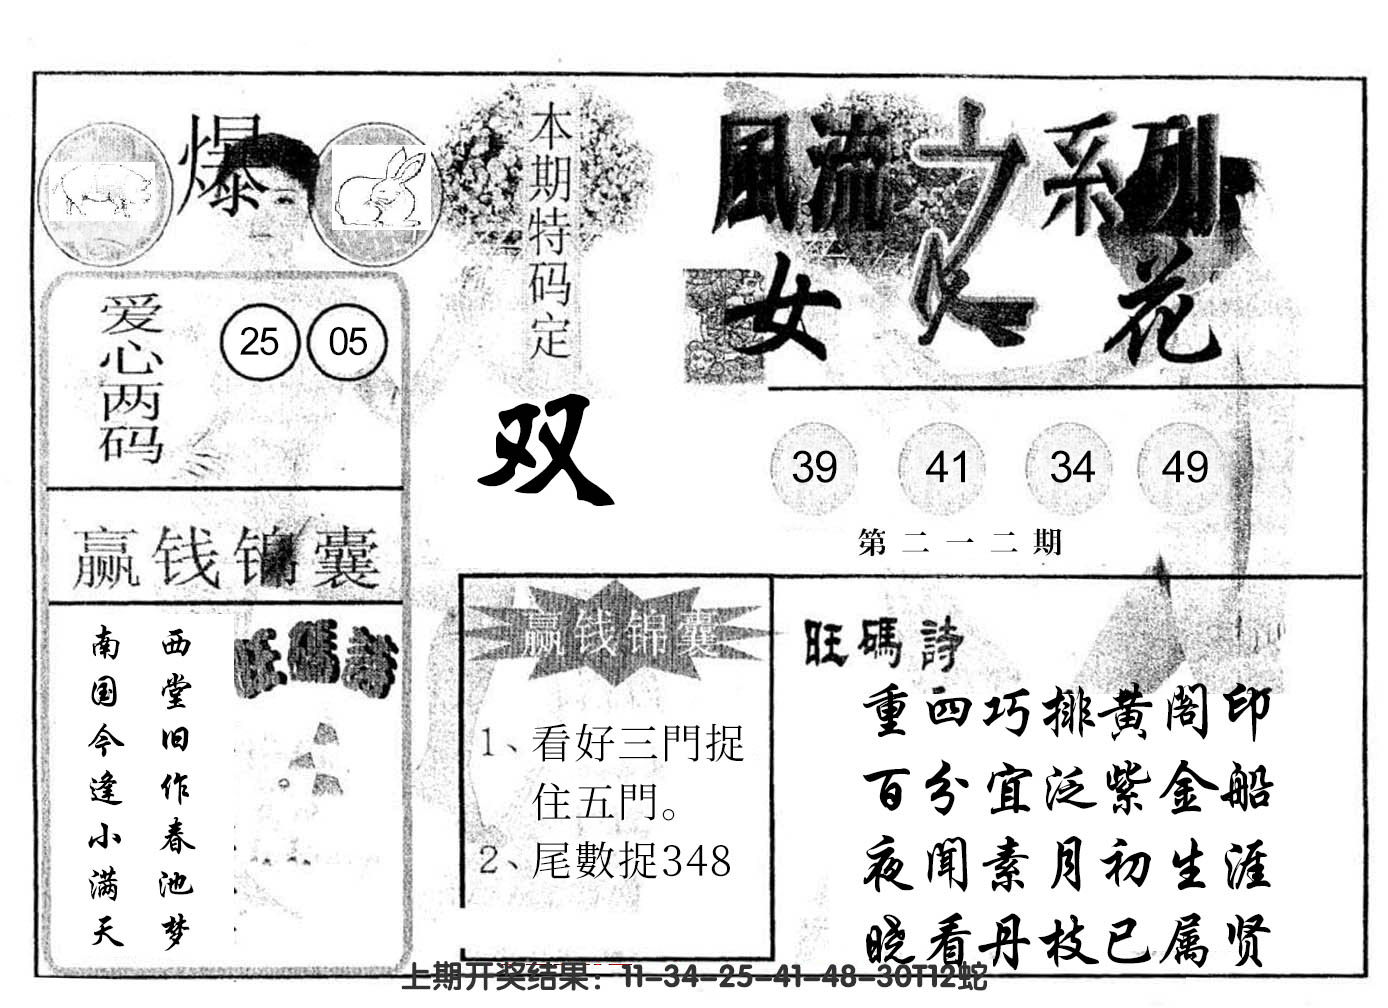 爆
本期特码定
双
風流之系列
女人花
爱心两码
25 05
39 41 34 49
第二一二期
赢钱锦囊
西堂旧作春池梦
南国今逢小满天
旺碼詩
赢钱锦囊
1、看好三門捉
住五門。
2、尾數捉348
旺碼詩
重四巧排黄阁印
百分宜泛紫金船
夜闻素月初生涯
晓看丹枝已属贤
上期开奖结果：11-34-25-41-48-30T12蛇